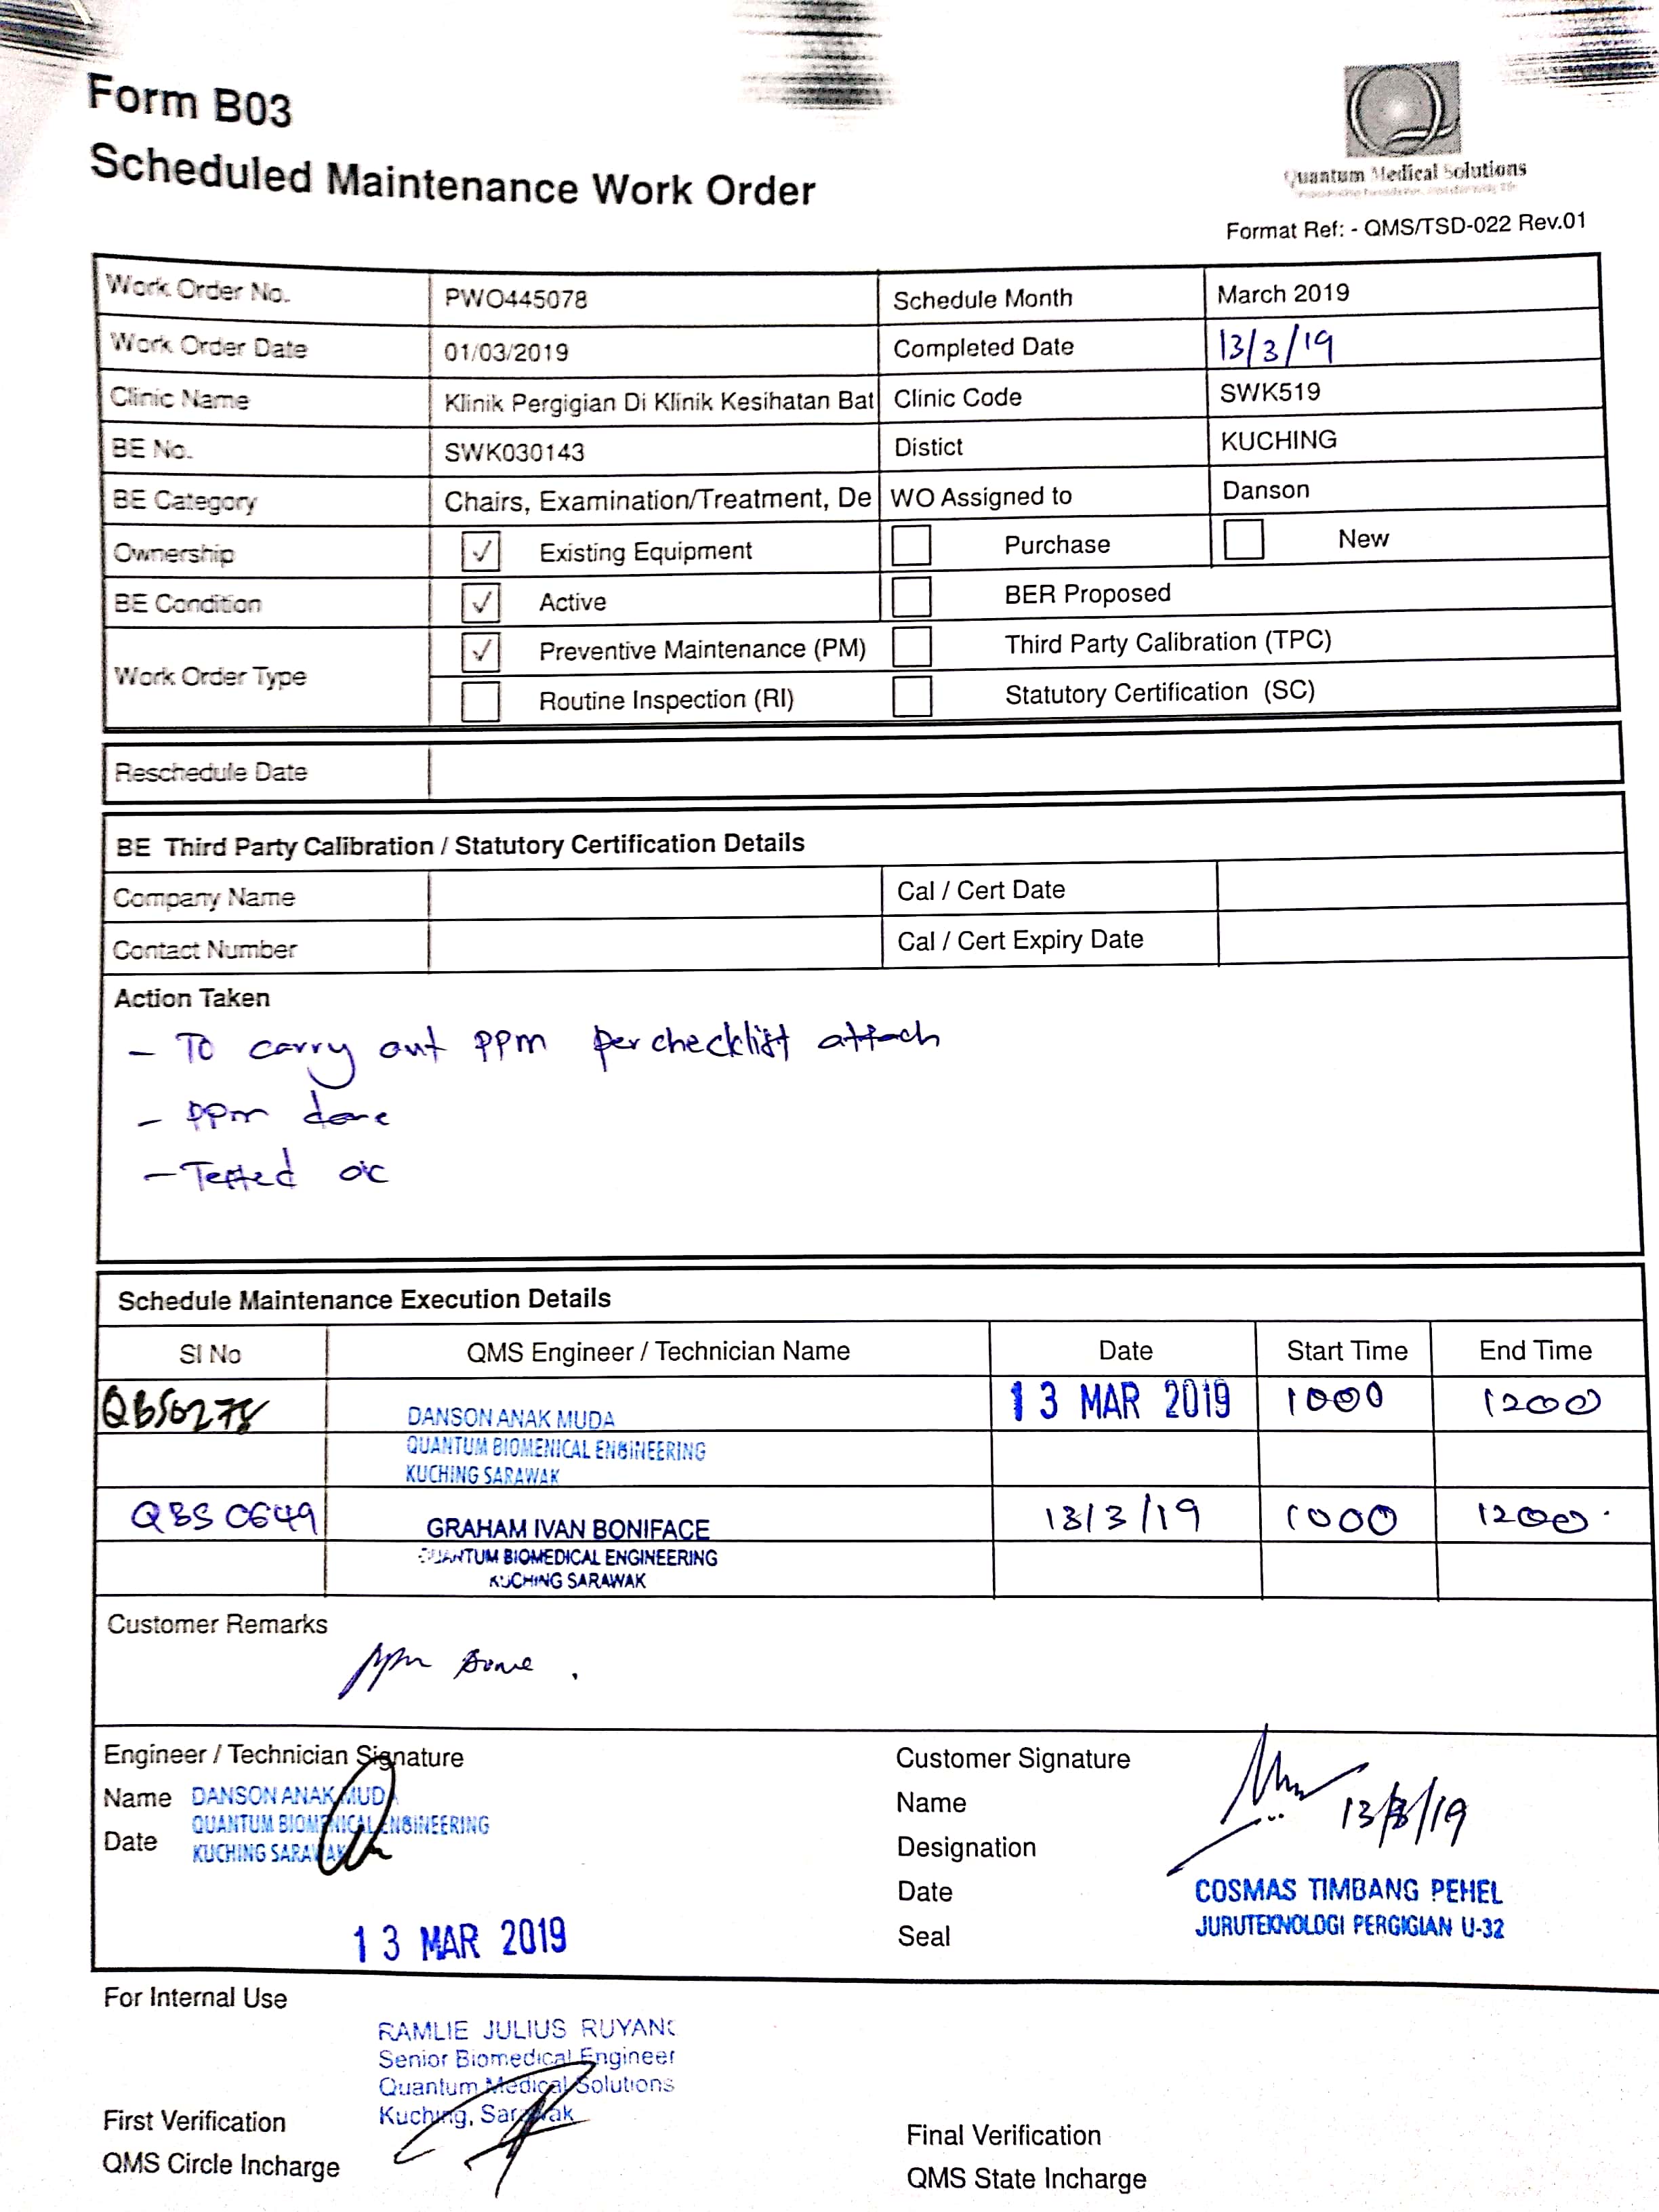 Form B03
Scheduled Maintenance Work Order
Quantum Medical Solutions
Format Ref: - QMS/TSD-022 Rev.01
Work Order No. PWO445078 Schedule Month March 2019
Work Order Date 01/03/2019 Completed Date 13/3/19
Clinic Name Klinik Pergigian Di Klinik Kesihatan Bat Clinic Code SWK519
BE No. SWK030143 Distict KUCHING
BE Category Chairs, Examination/Treatment, De WO Assigned to Danson
Ownership ✓ Existing Equipment Purchase New
BE Condition ✓ Active BER Proposed
Work Order Type ✓ Preventive Maintenance (PM) Third Party Calibration (TPC)
Routine Inspection (RI) Statutory Certification (SC)
Reschedule Date
BE Third Party Calibration / Statutory Certification Details
Company Name Cal / Cert Date
Contact Number Cal / Cert Expiry Date
Action Taken
- To carry out ppm per checklist attach
- ppm done
- Tested ok
Schedule Maintenance Execution Details
Sl No QMS Engineer / Technician Name Date Start Time End Time
QBS0278 DANSON ANAK MUDA 13 MAR 2019 1000 1200
QUANTUM BIOMENICAL ENGINEERING
KUCHING SARAWAK
QBS 0649 GRAHAM IVAN BONIFACE 13/3/19 1000 1200
QUANTUM BIOMEDICAL ENGINEERING
KUCHING SARAWAK
Customer Remarks
ppm done.
Engineer / Technician Signature Customer Signature
Name DANSON ANAK MUDA Name 13/3/19
QUANTUM BIOMENICAL ENGINEERING
Date KUCHING SARAWAK Designation
Date COSMAS TIMBANG PEHEL
Seal JURUTEKNOLOGI PERGIGIAN U-32
13 MAR 2019
For Internal Use
RAMLIE JULIUS RUYANG
Senior Biomedical Engineer
Quantum Medical Solutions
Kuching, Sarawak
First Verification Final Verification
QMS Circle Incharge QMS State Incharge